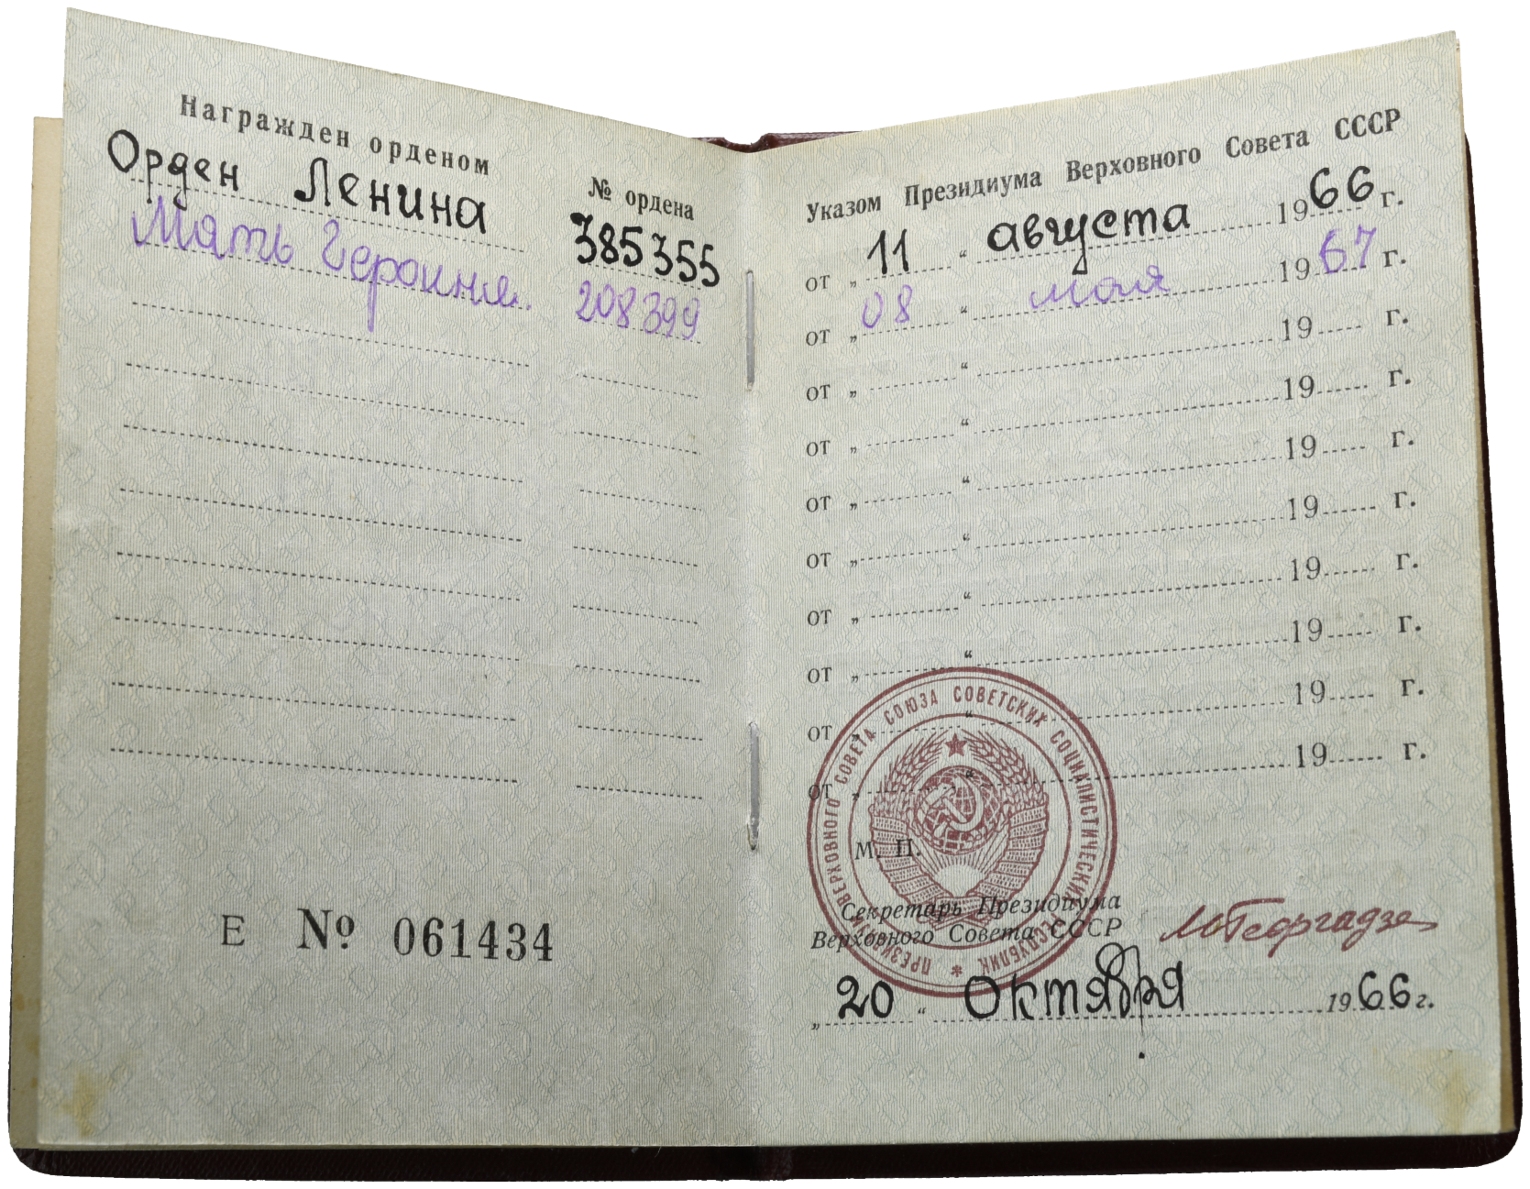 Награжден орденом
№ ордена
Орден Ленина
385355
Мать Героиня.
208399
Е № 061434
Указом Президиума Верховного Совета СССР
от „ 11 “ августа 1966 г.
от „ 08 “ мая 1967 г.
от „ “ 19 г.
от „ “ 19 г.
от „ “ 19 г.
от „ “ 19 г.
от „ “ 19 г.
от „ “ 19 г.
от „ “ 19 г.
от „ “ 19 г.
М. П.
ПРЕЗИДИУМ ВЕРХОВНОГО СОВЕТА СОЮЗА СОВЕТСКИХ СОЦИАЛИСТИЧЕСКИХ РЕСПУБЛИК *
Секретарь Президиума
Верховного Совета СССР
М Георгадзе
„ 20 “ Октября 1966 г.